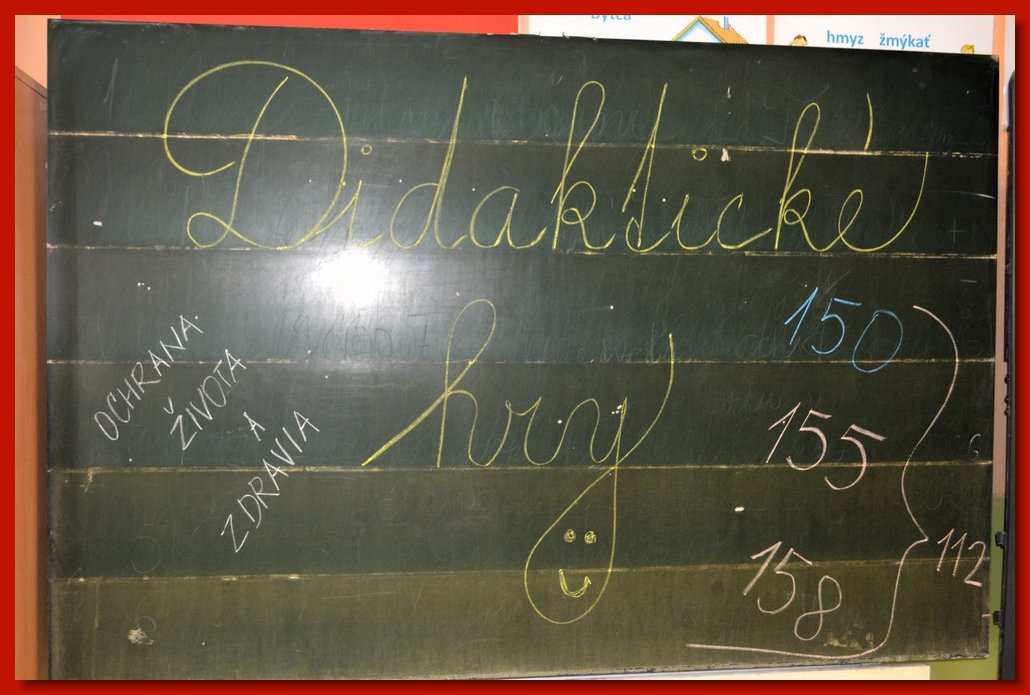 Bytča
hmyz žmýkať
Didaktické
hry
OCHRANA
ŽIVOTA
A
ZDRAVIA
150
155
158
112